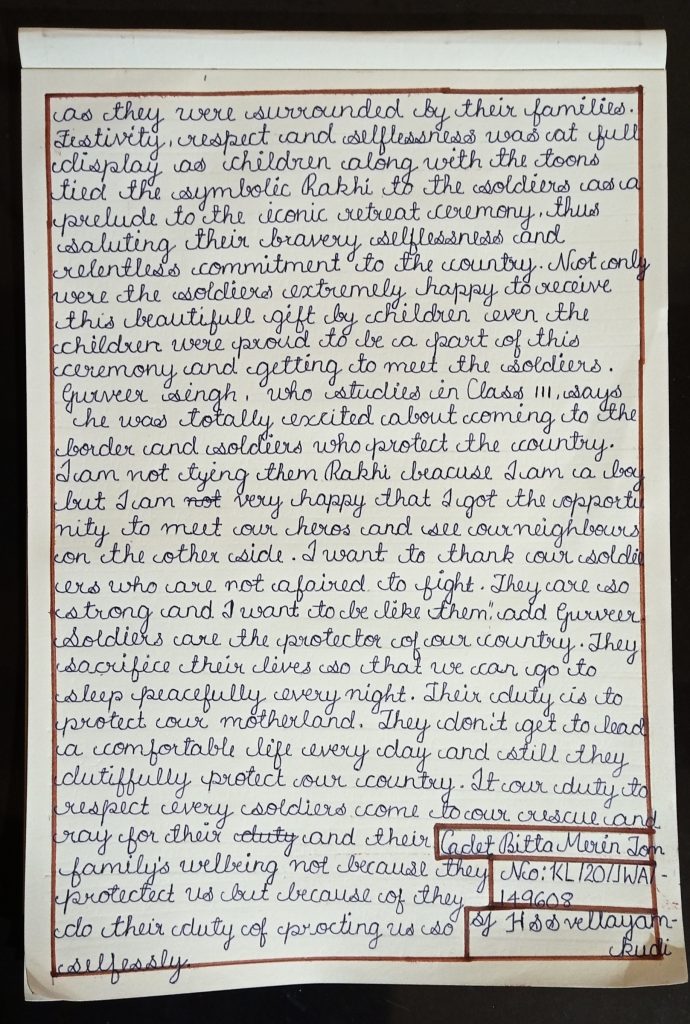 as they were surrounded by their families.
Festivity, respect and selflessness was at full
display as children along with the toons
tied the symbolic Rakhi to the soldiers as a
prelude to the iconic retreat ceremony, thus
saluting their bravery selflessness and
relentless commitment to the country. Not only
were the soldiers extremely happy to receive
this beautifull gift by children even the
children were proud to be a part of this
ceremony and getting to meet the soldiers.
Gurveer singh, who studies in Class III, says
he was totally excited about coming to the
border and soldiers who protect the country.
I am not tying them Rakhi beacuse I am a boy
but I am not very happy that I got the opportu
nity to meet our heros and see our neighbours
on the other side. I want to thank our soldie
ers who are not afaired to fight. They are so
strong and I want to be like them", add Gurveer
Soldiers are the protector of our country. They
sacrifice their lives so that we can go to
sleep peacefully every night. Their duty is to
protect our motherland. They don't get to lead
a comfortable life every day and still they
dutiffully protect our country. It our duty to
respect every soldiers come to our rescue and
ray for their duty and their
family's wellbeing not because they
protectect us but because of they
do their duty of procting us so
selfessly.
Cadet Bitta Merin Tom
No: KL/20/JWA/-
149608
SJ HSS vellayam-
kudi